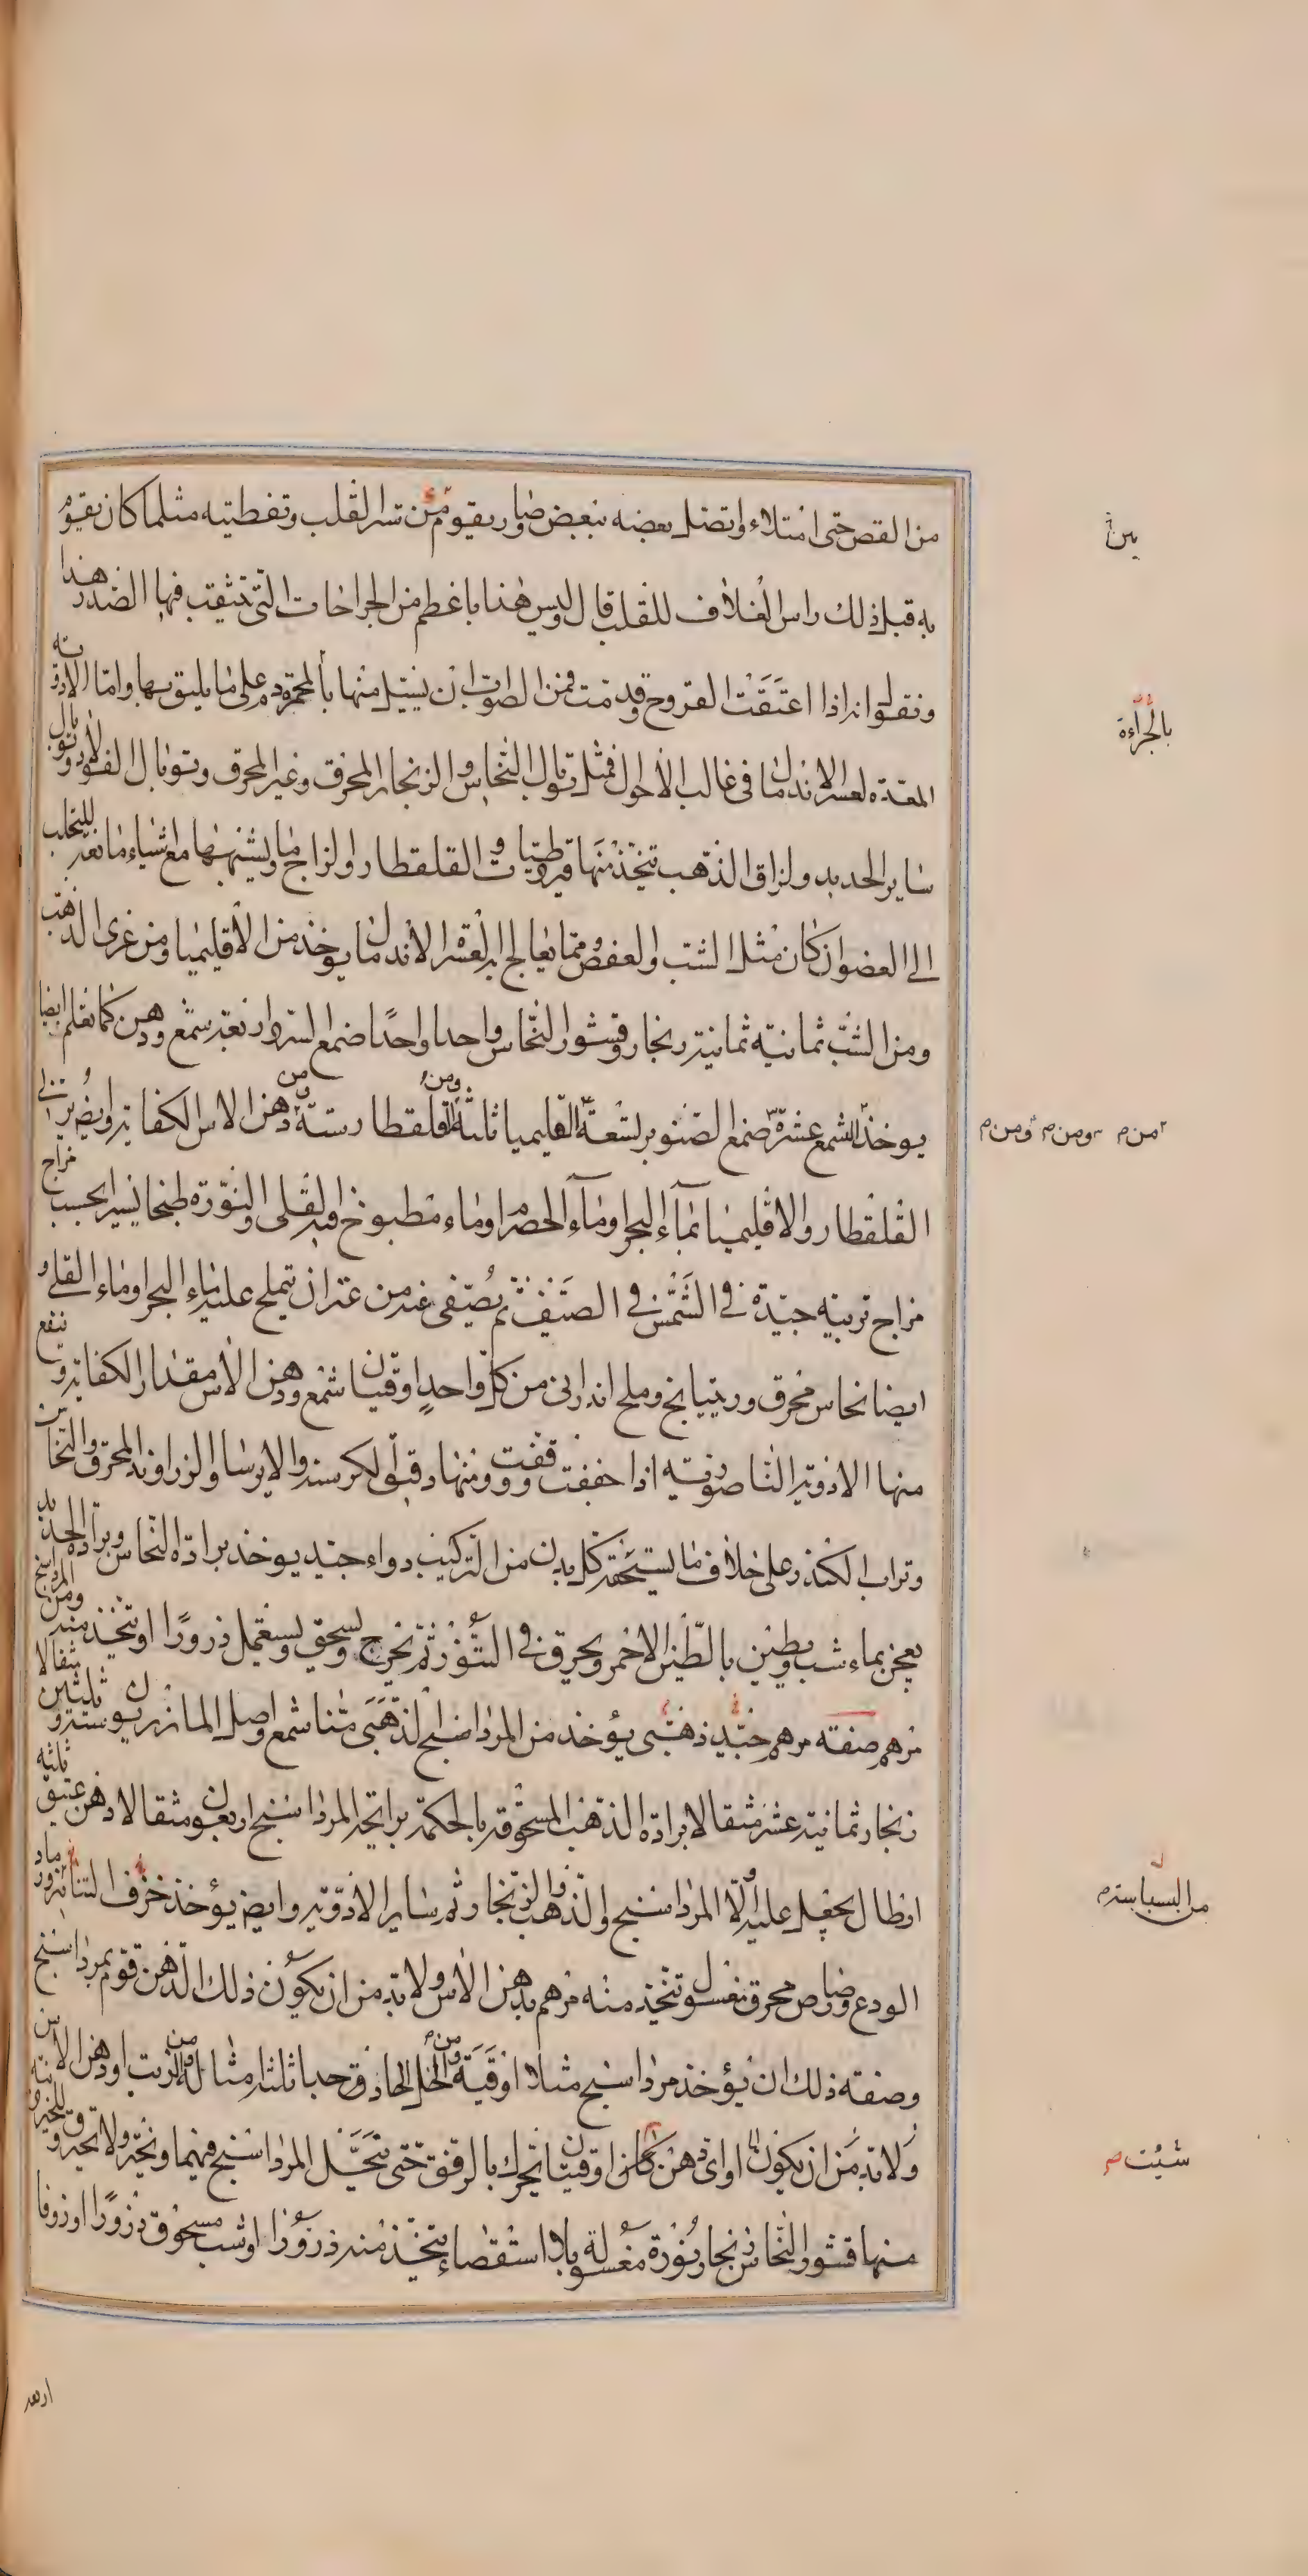 من القص حتى امتلاء واتصل بعضه ببعض وصار يقوم من ستر القلب وتغطيته مثلما كان يقوم
به قبل ذلك راس الغلاف للقلب قال وليس هذا باعظم من الجراحات التى تثقب فيها الصدر هذا
ونقول انه اذا اعتقت القروح وقدمت فمن الصواب ان يسيل منها دم بالمحمرة على ما يليق بها واما الادوية
المعدة لعسر الاندمال فى غالب الاحوال فمثل توبال النحاس والزنجار المحرق وغير المحرق وتوبال الفولاذ وتوبال
ساير الحديد ولزاق الذهب تتخذ منها قيروطيات والقلقطار والزاج وما يشبهها مع اشياء مانعة للتحلب
الى العضو ان كان مثل الشب والعفص ومما يعالج به العسرة الاندمال يوخذ من الاقليميا ومن غرى الذهب
ومن الشب ثمانية ثمانية زنجار وقشور النحاس واحدا واحدا صمغ السرو اربعة شمع ودهن كما تعلم ايضا
يوخذ الشمع عشرة صمغ الصنوبر تسعة القليميا ثلثة ومن القلقطار ستة ومن دهن الاس الكفاية وايضا يربى
القلقطار والاقليميا بماء البحر او ماء الحصرم او ماء مطبوخ فيه القلى والنورة طبخا يسيرا بحسب مزاج
مزاج تربيه جيدة فى الشمس فى الصيف ثم يصفى عنه من غير ان تملح عليه ماء البحر او ماء القلى و
ايضا نحاس محرق وريتيانج وملح اندرانى من كل واحد اوقيتان شمع ودهن الاس مقدار الكفاية وينفع
منها الادوية الناصورية اذا خففت وقفت ومنها دقيق الكرسنة والايرسا والزراوند المحرق والنحاس
وتراب الكندر على خلاف ما يستحقه كل بدن من التركيب دواء جيد يوخذ برادة النحاس وبرادة الحديد
يعجن بماء شب ويطين بالطين الاحمر ويحرق فى التنور ثم يخرج ويسحق ويستعمل ذرورا او يتخذ منه ومن المرداسنج
مرهم صفته مرهم جيد ذهبى يؤخذ من المرداسنج الذهبى منا شمع واصل المازريون ستة وثلثين مثقالا
زنجار ثمانية عشر مثقالا برادة الذهب المسحوقة بالحكمة برايحه المرداسنج اربعون مثقالا دهن عتيق ثلثه
ارطال يجعل عليه اولا المرداسنج والذهب والزنجار ثم ساير الادوية وايضا يؤخذ خزف التنانير ورماد
الودع ورصاص محرق مغسول وتتخذ منه مرهم بدهن الاس ولا بد من ان يكون ذلك الدهن قوم بمرداسنج
وصفته ذلك ان يؤخذ مرداسنج مثلا اوقية ومن الخل الحاذق جدا ثلثة امثاله ومن الزيت او دهن الاس
ولا بد من ان يكون او اى دهن كان اوقيتان يحرك بالرفق حتى يتحلل المرداسنج فيهما ونحيه ولا تحترق
منها قشور النحاس زنجار نورة مغسولة بلا استقصاء يتخذ منه ذرورا او شب مسحوق ذرورا او زوفا
ين
بالجراءة
من م ومن م ومن م
من البسباسة م
شيئت صح